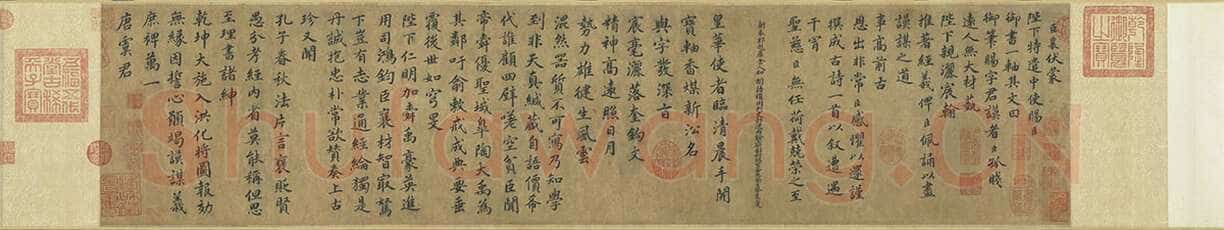 臣襄伏蒙
陛下特遣中使賜臣
御書一軸其文曰
御筆賜字君謨者臣孤賤
遠人無大材藝
陛下親灑宸翰
推著經義俾臣佩誦以盡
謨謀之道
事高前古
恩出非常臣感懼以還謹
撰成古詩一首以敘遭遇
干冒
聖慈臣無任荷戴兢榮之至
皇華使者臨清晨手開
寶軸香煤新沁名
與字發深旨
宸毫灑落奎鉤文
精神高遠照日月
勢力雄健生風雲
混然器質不可寫乃知學
到非天真緘藏自語價希
代誰顧四壁嗟空貧臣聞
帝舜優聖域皋陶大禹為
其鄰吁俞敕戒成典要垂
覆後世如穹旻
陛下仁明加舜禹豪英進
用司鴻鈞臣襄材智最駑
下豈有志業通經綸獨是
丹誠抱忠朴常欲贊奏上古
珍又聞
孔子春秋法片言褒貶賢
愚分考經內省莫能稱但思
至理書諸紳
乾坤大施入洪化將圖報効
無緣因誓心願竭謨謀義
庶裨萬一
唐虞君
Shufawang.cn